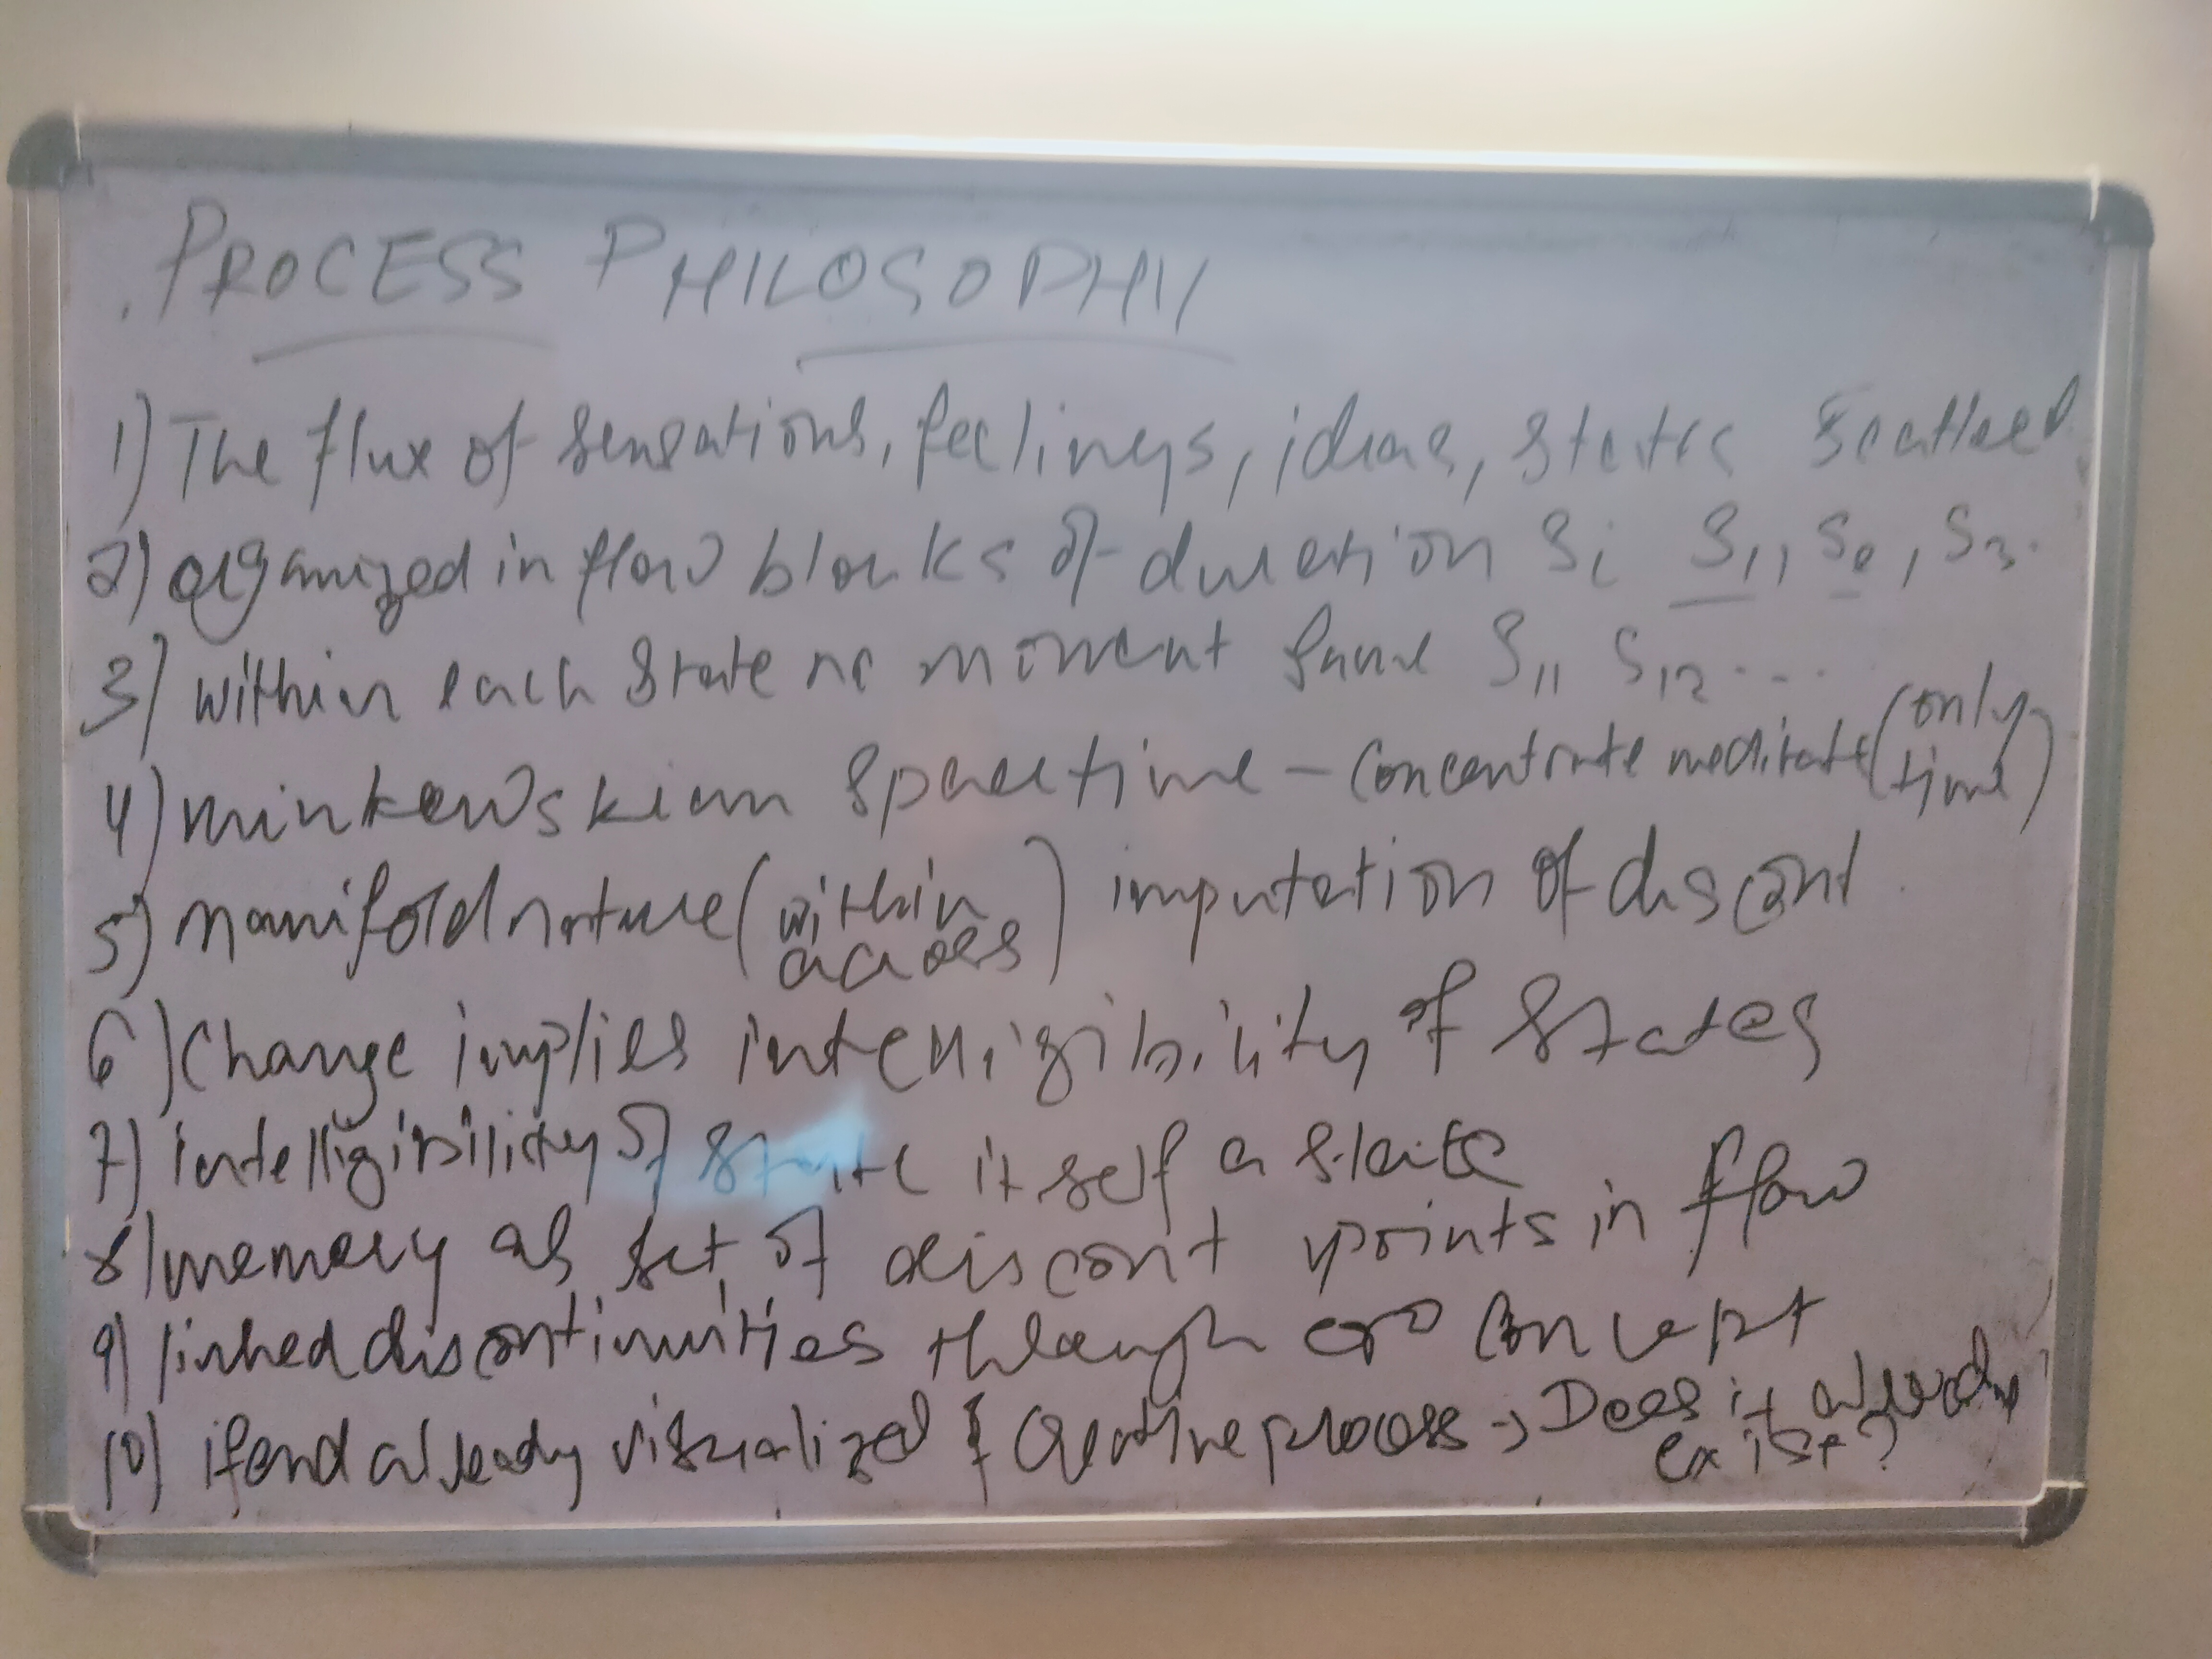 PROCESS PHILOSOPHY
1) The flux of sensations, feelings, ideas, states scattered
2) organized in flow blocks of duration Si S1, S2, S3.
3) within each state no moment same S11 S12 ....
4) minkowskian spacetime - concentrate meditate (only time)
5) manifold nature (within across) imputation of discont.
6) Change implies intelligibility of states
7) intelligibility of state itself a state
8) memory as set of discont points in flow
9) linked discontinuities through concept
10) if end already visualized & creative process → Does it already exist?